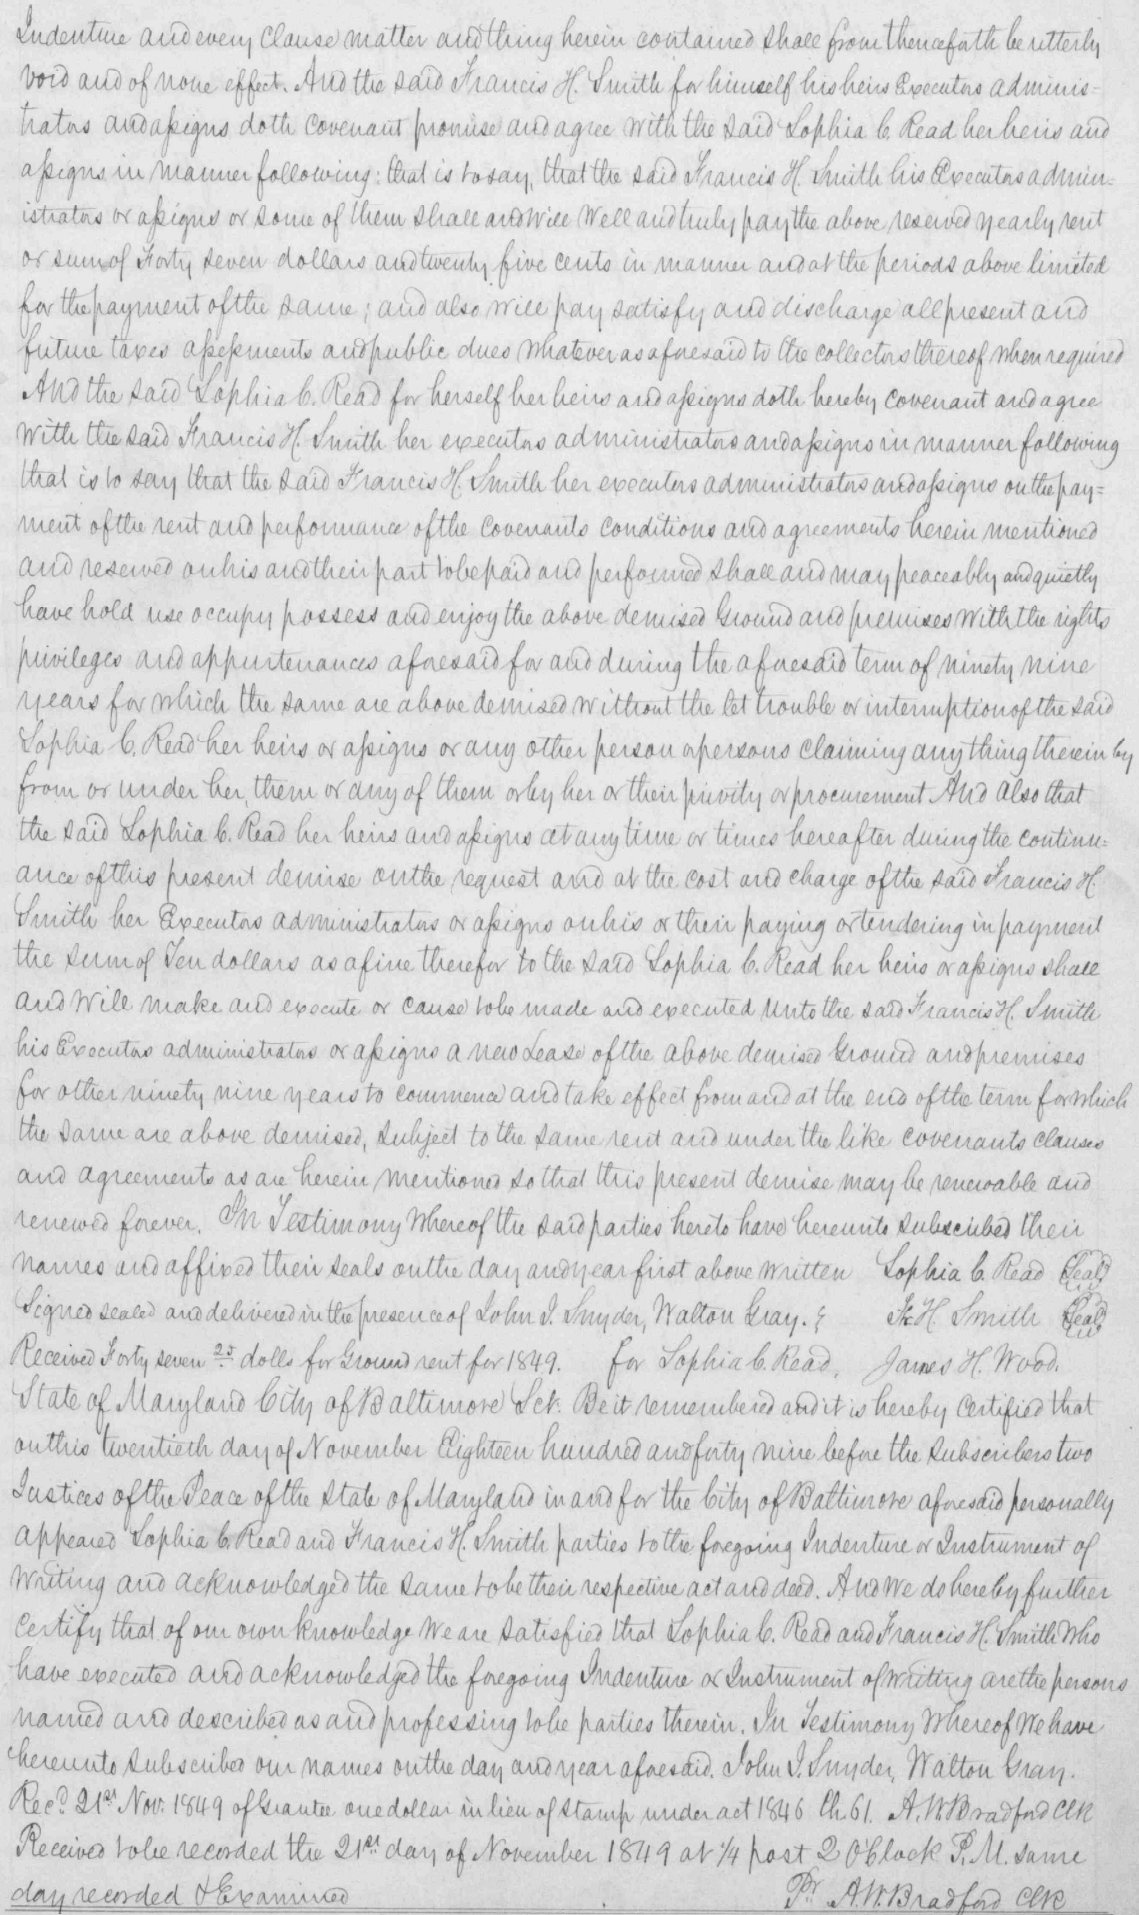 Indenture and every Clause matter and thing herein contained shall from thenceforth be utterly
void and of none effect. And the said Francis H. Smith for himself his heirs Executors adminis=
trators and assigns doth covenant promise and agree with the said Sophia C. Read her heirs and
assigns in manner following: that is to say, that the said Francis H. Smith his Executors admin=
istrators or assigns or some of them shall and will well and truly pay the above reserved yearly rent
or sum of Forty seven dollars and twenty five cents in manner and at the periods above limited
for the payment of the same; and also will pay satisfy and discharge all present and
future taxes assessments and public dues whatever as aforesaid to the collectors thereof when required
And the said Sophia C. Read for herself her heirs and assigns doth hereby covenant and agree
with the said Francis H. Smith her executors administrators and assigns in manner following
that is to say that the said Francis H. Smith her executors administrators and assigns on the pay=
ment of the rent and performance of the covenants conditions and agreements herein mentioned
and reserved on his and their part to be paid and performed shall and may peaceably and quietly
have hold use occupy possess and enjoy the above demised Ground and premises with the rights
privileges and appurtenances aforesaid for and during the aforesaid term of ninety nine
years for which the same are above demised without the let trouble or interruption of the said
Sophia C. Read her heirs or assigns or any other person or persons claiming any thing therein by
from or under her, them or any of them or by her or their privity or procurement And also that
the said Sophia C. Read her heirs and assigns at any time or times hereafter during the continu=
ance of this present demise on the request and at the cost and charge of the said Francis H.
Smith her Executors administrators or assigns on his or their paying or tendering in payment
the sum of Ten dollars as a fine therefor to the said Sophia C. Read her heirs or assigns shall
and will make and execute or cause to be made and executed unto the said Francis H. Smith
his Executors administrators or assigns a new Lease of the above demised Ground and premises
for other ninety nine years to commence and take effect from and at the end of the term for which
the same are above demised, subject to the same rent and under the like covenants clauses
and agreements as are herein mentioned so that this present demise may be renewable and
renewed forever. In Testimony whereof the said parties hereto have hereunto subscribed their
names and affixed their seals on the day and year first above written Sophia C. Read Seal
Signed sealed and delivered in the presence of John I. Snyder, Walton Gray. } Fr. H. Smith Seal
Received Forty seven 25 dolls for Ground rent for 1849. for Sophia C. Read, James H. Wood.
State of Maryland City of Baltimore Sct. Be it remembered and it is hereby certified that
on this twentieth day of November Eighteen hundred and forty nine before the subscribers two
Justices of the Peace of the State of Maryland in and for the City of Baltimore aforesaid personally
appeared Sophia C. Read and Francis H. Smith parties to the foregoing Indenture or Instrument of
Writing and acknowledged the same to be their respective act and deed. And We do hereby further
certify that of our own knowledge We are satisfied that Sophia C. Read and Francis H. Smith Who
have executed and acknowledged the foregoing Indenture or Instrument of writing are the persons
named and described as and professing to be parties therein. In Testimony Whereof We have
hereunto subscribed our names on the day and year aforesaid. John I. Snyder, Walton Gray.
Recd. 21st Nov. 1849 of Grantee one dollar in lieu of stamp under act 1846 Ch. 61. A. W. Bradford Clk
Received to be recorded the 21st day of November 1849 at 1/4 past 2 O'Clock P.M. same
day recorded & Examined Pr A. W. Bradford Clk